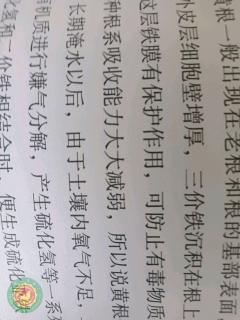 黄根一般出现在老根和根的基部表面,
外皮层细胞壁增厚，三价铁沉积在根上
这层铁膜有保护作用，可防止有毒物质
种根系吸收能力大大减弱，所以说黄根
长期淹水以后，由于土壤内氧气不足，
有机质进行嫌气分解，产生硫化氢等一系
化氢和二价铁相结合时，便生成硫化